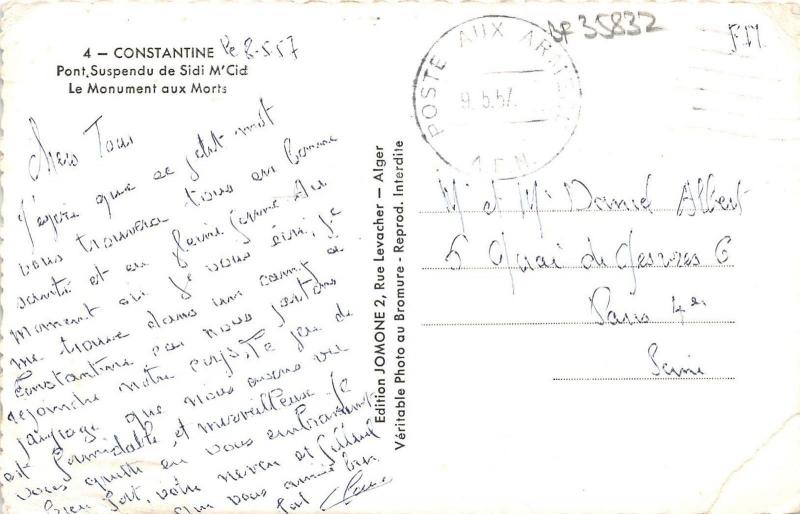 4 — CONSTANTINE le 8-5.57
Pont Suspendu de Sidi M'Cid
Le Monument aux Morts
Chers Tous
J'espère que ce petit mot
vous trouvera tous en bonne
santé et en forme comme Au
moment où je vous écris, je
me trouve dans un camp à
Constantine nous partons
rejoindre notre le
paysage que nous avons vu
est formidable et merveilleux Je
vous quitte en vous embrassant
bien fort, votre neveu et filleul
qui vous aime bien
Edition JOMONE 2, Rue Levacher — Alger
Véritable Photo au Bromure - Reprod. Interdite
POSTE AUX ARMÉES
9.5.57
A.F.N.
DF 35832
F.M.
Mr et Me Daniel Albert
5 Quai de Gesvres 6
Paris 4e
Seine